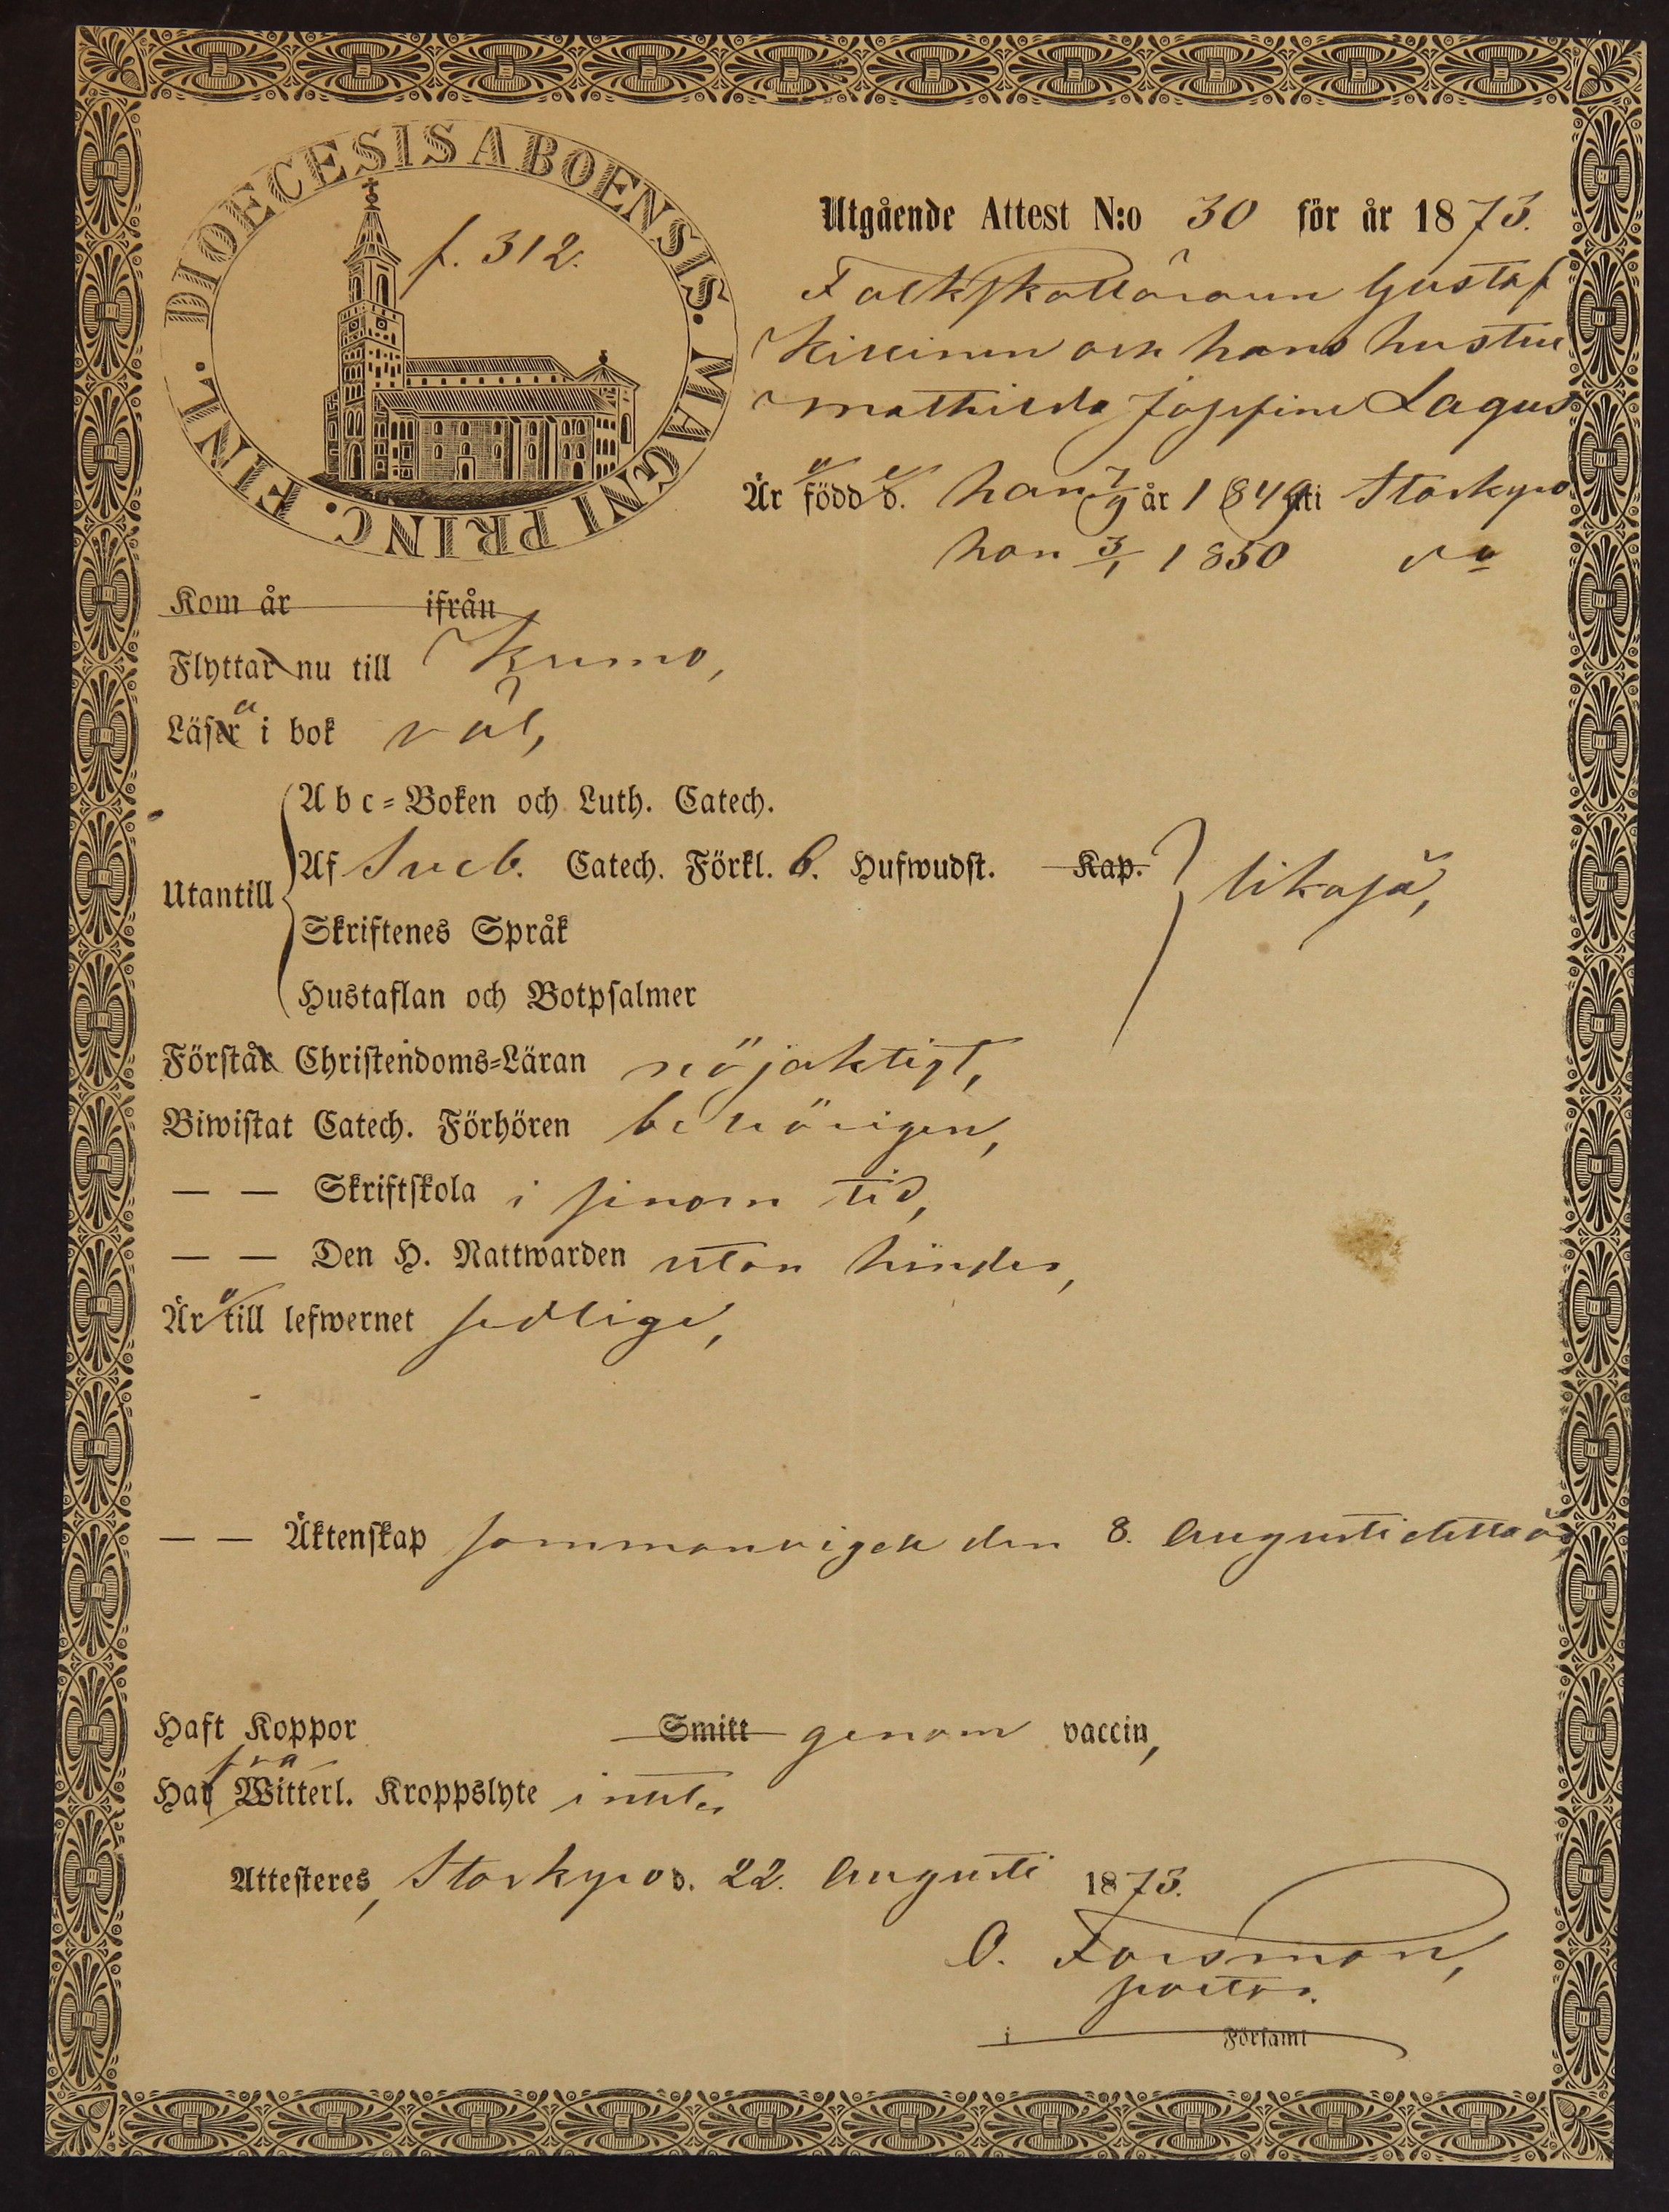 DIOECESIS ABOENSIS. MAGNI PRINC. FINL.
f. 312.
Utgående Attest N:o 30 för år 1873.
Folkskolläraren Gustaf
och hans hustru
Mathilda Josefina Lagus
Är a född e d. han 7/9 år 1849 i Storkyro
hon 3/1 1850 do
Kom år ifrån
Flyttar nu till Kumo,
Läser a i bok väl,
Abc-Boken och Luth. Catech.
Utantill Af Sveb. Catech. Förkl. 6. Hufwudst. Kap. likaså,
Skriftenes Språk
Hustaflan och Botpsalmer
Förstår Christendoms-Läran nöjaktigt,
Biwistat Catech. Förhören behörigen,
— — Skriftskola i sinom tid,
— — Den H. Nattwarden utan hinder,
Är o till lefwernet sedliga,
— — Äktenskap sammanvigda den 8. Augusti detta år
Haft Koppor Smitt genom vaccin,
Har fva Witterl. Kroppslyte intet.
Attesteres, Storkyro d. 22. Augusti 1873.
O. Forsman,
pastor.
i Församl